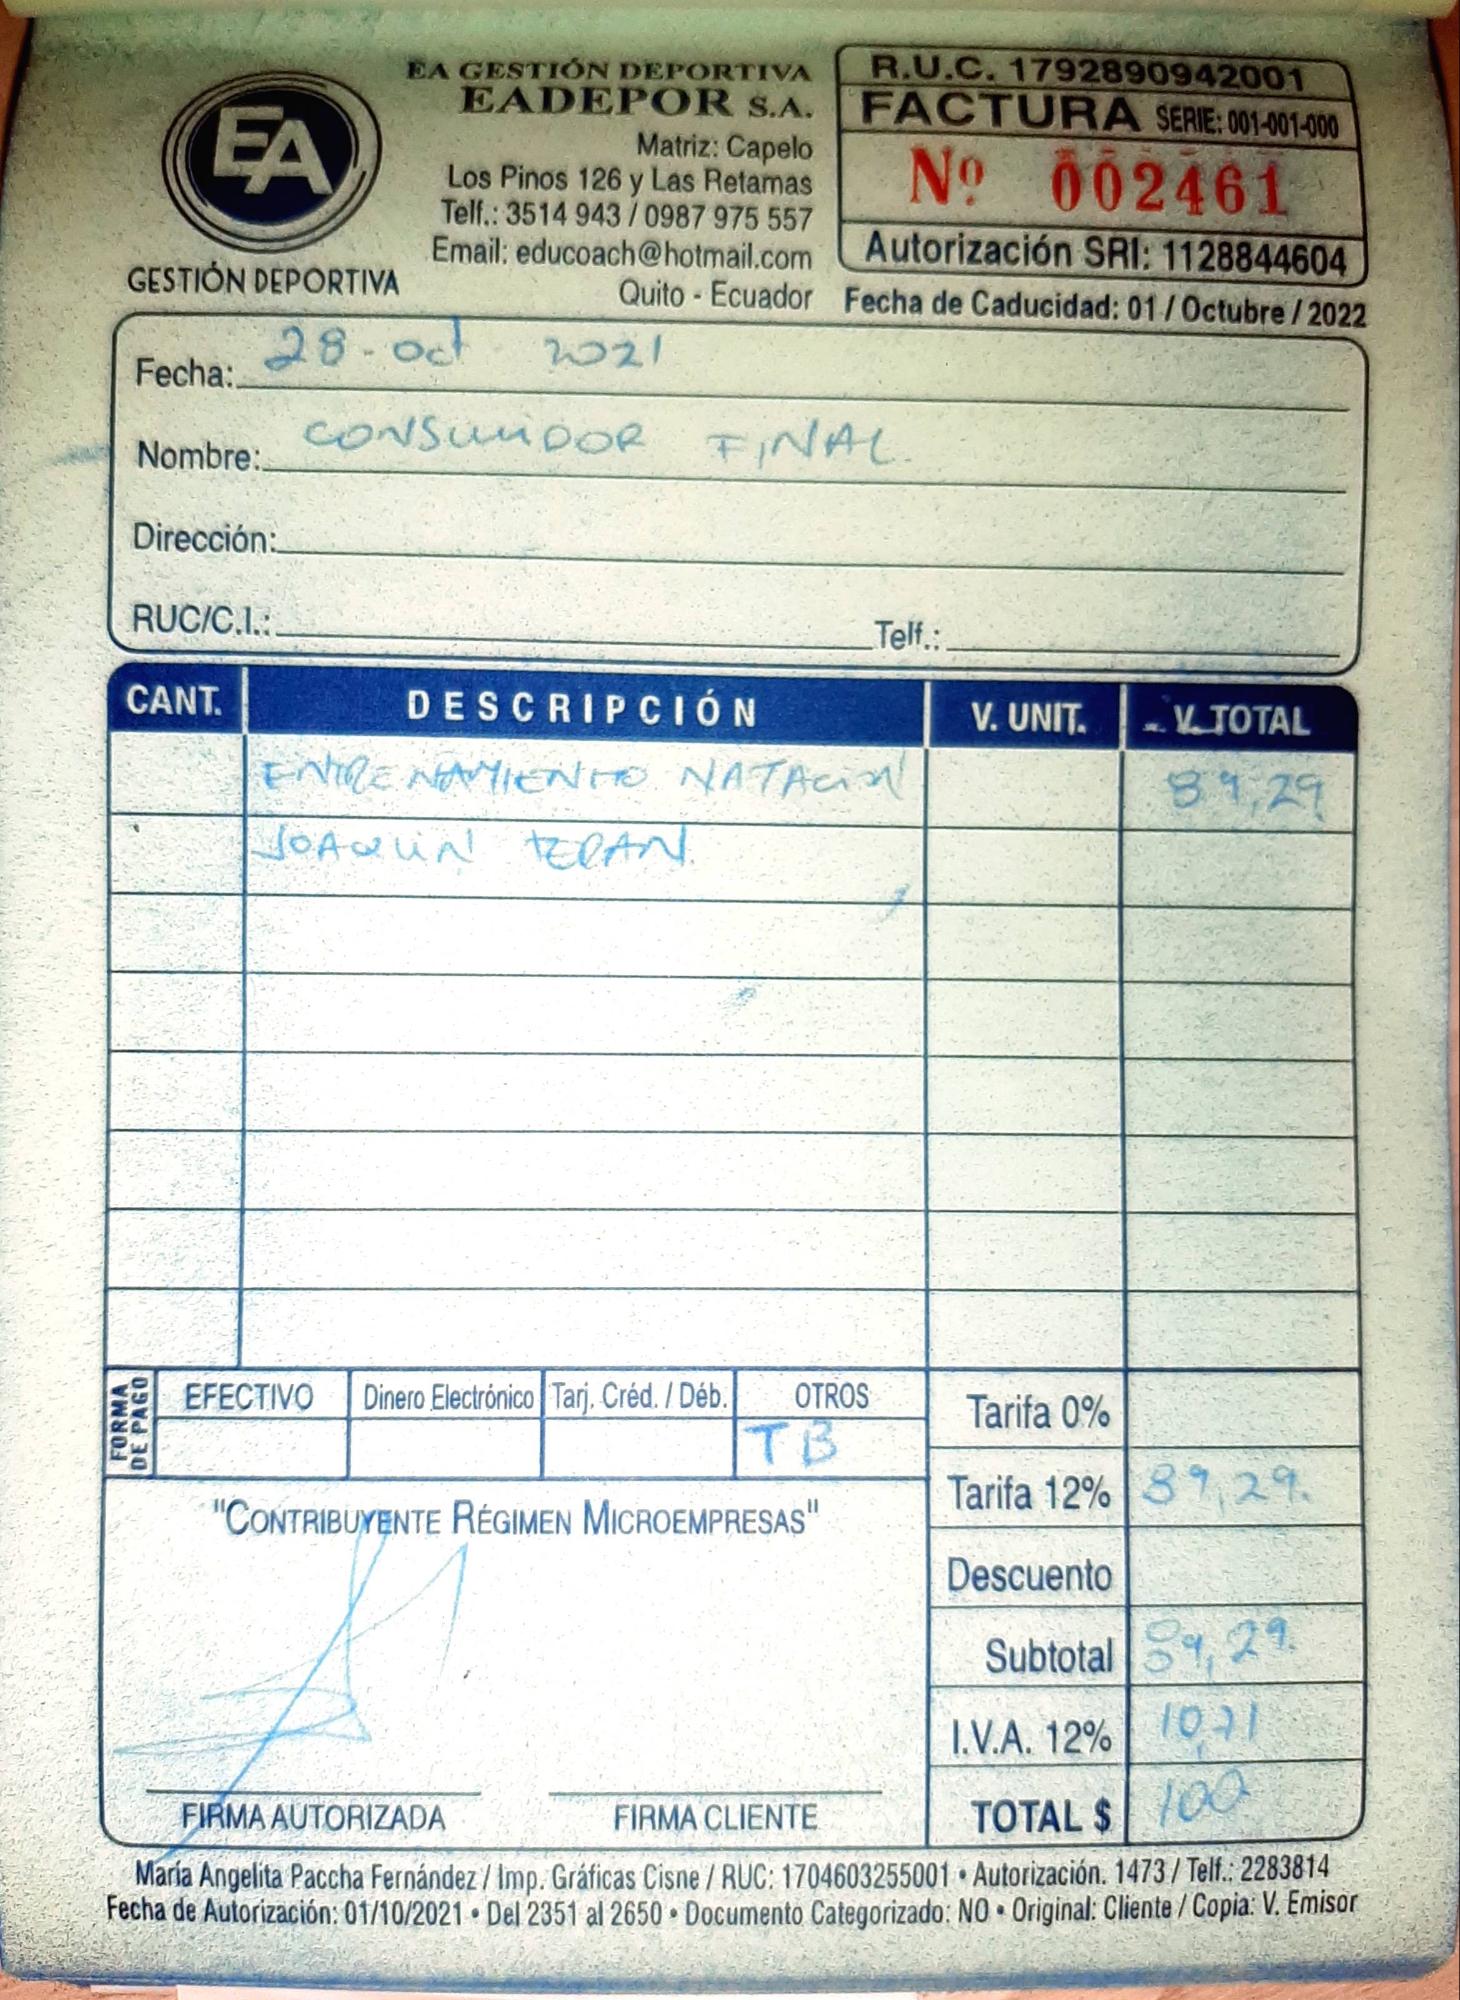 EA
GESTIÓN DEPORTIVA
EA GESTIÓN DEPORTIVA
EADEPOR S.A.
Matriz: Capelo
Los Pinos 126 y Las Retamas
Telf.: 3514 943 / 0987 975 557
Email: educoach@hotmail.com
Quito - Ecuador
R.U.C. 1792890942001
FACTURA SERIE: 001-001-000
Nº 002461
Autorización SRI: 1128844604
Fecha de Caducidad: 01 / Octubre / 2022
Fecha: 28-oct 2021
Nombre: CONSUMIDOR FINAL.
Dirección:
RUC/C.I.: Telf.:
CANT. DESCRIPCIÓN V. UNIT. V. TOTAL
ENTRENAMIENTO NATACION 89,29
JOAQUIN TERAN
FORMA DE PAGO EFECTIVO Dinero Electrónico Tarj. Créd. / Déb. OTROS
TB
Tarifa 0%
Tarifa 12% 89,29.
Descuento
Subtotal 89,29.
I.V.A. 12% 10,71
TOTAL $ 100
"CONTRIBUYENTE RÉGIMEN MICROEMPRESAS"
FIRMA AUTORIZADA FIRMA CLIENTE
María Angelita Paccha Fernández / Imp. Gráficas Cisne / RUC: 1704603255001 • Autorización. 1473 / Telf.: 2283814
Fecha de Autorización: 01/10/2021 • Del 2351 al 2650 • Documento Categorizado: NO • Original: Cliente / Copia: V. Emisor